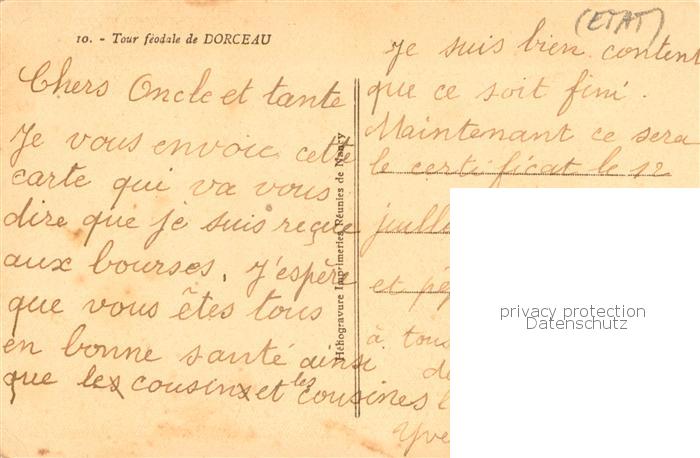 10. - Tour féodale de DORCEAU
Chers Oncle et tante
Je vous envoie cette
carte qui va vous
dire que je suis reçue
aux bourses. J'espère
que vous êtes tous
en bonne santé ainsi
que les cousins et les cousines
Héliogravure Imprimeries Réunies de Nancy
(ETAT)
Je suis bien content
que ce soit fini.
Maintenant ce sera
le certificat le 12
juille
et
à tous
de
Yve
privacy protection
Datenschutz